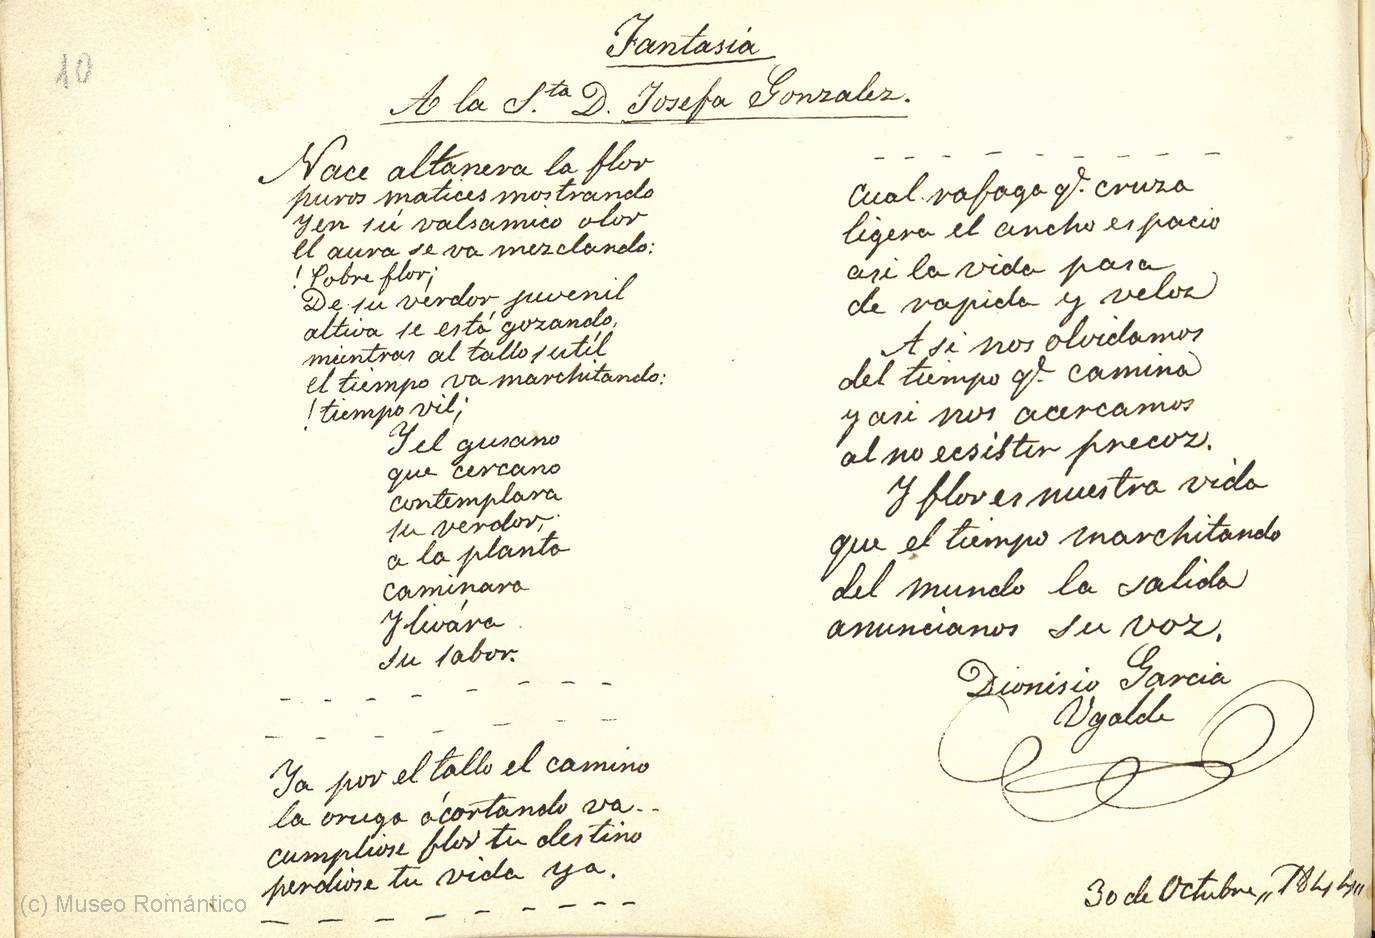 10
Fantasia
A la S.ta D. Josefa Gonzalez.
Nace altanera la flor
puros matices mostrando
y en sú valsamico olor
el aura se va mezclando:
! Pobre flor¡
De su verdor juvenil
altiva se está gozando,
mientras al tallo sutíl
el tiempo va marchitando:
! tiempo vil¡
Y el gusano
que cercano
contemplara
su verdor,
a la planta
caminara
Y livára
su sabor.
Ya por el tallo el camino
la oruga ácortando va..
cumpliose flor tu destino
perdiose tu vida ya.
Cual rafaga q.e cruza
ligera el ancho espacio
asi la vida pasa
de rapida y veloz
Asi nos olvidamos
del tiempo q.e camina
y asi nos acercamos
al no ecsistir precoz.
Y flor es nuestra vida
que el tiempo marchitando
del mundo la salida
anuncianos su voz.
Dionisio Garcia
Ugalde
30 de Octubre,, 1844,,
(c) Museo Romántico